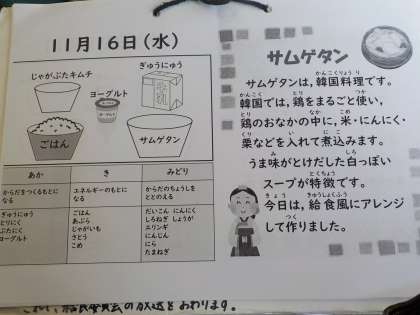 11月16日(水)
じゃがぶたキムチ
ぎゅうにゅう
ヨーグルト
牛乳
ごはん
サムゲタン
あか
き
みどり
からだをつくるもとに
なる
エネルギーのもとに
なる
からだのちょうしを
ととのえる
ぎゅうにゅう
とりにく
ぶたにく
ヨーグルト
ごはん
あぶら
じゃがいも
さとう
こめ
だいこん にんにく
しろねぎ しょうが
エリンギ
にんじん
にら
たまねぎ
サムゲタン
サムゲタンは、韓国料理です。
韓国では、鶏をまるごと使い、
鶏のおなかの中に、米・にんにく・
栗などを入れて煮込みます。
うま味がとけだした白っぽい
スープが特徴です。
今日は、給食風にアレンジ
して作りました。
これで、給食委員会の放送をおわります。